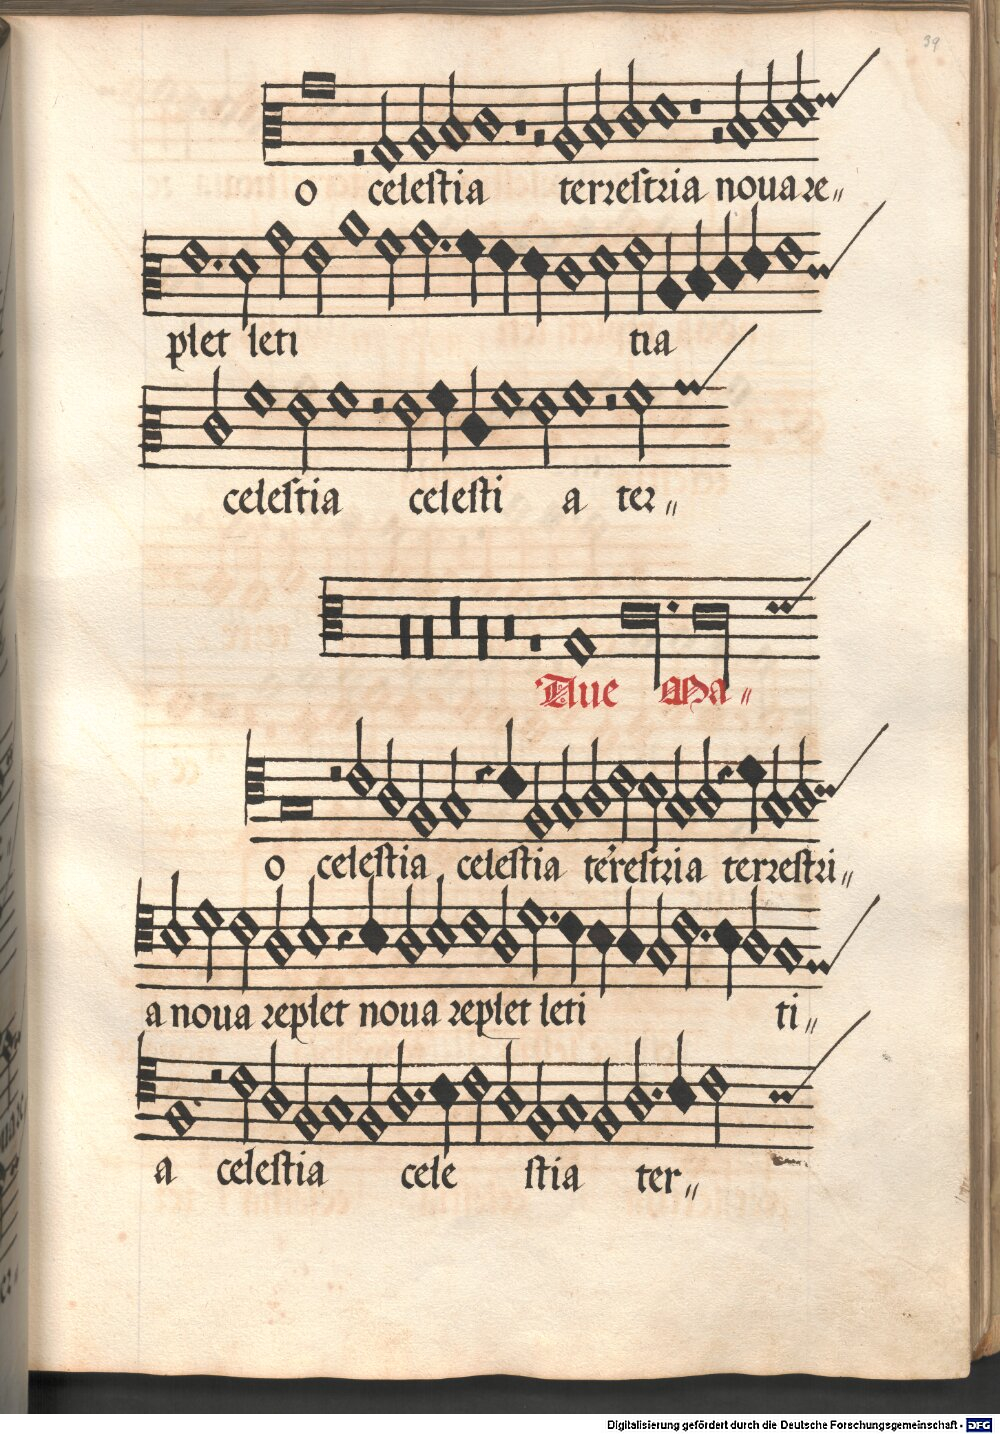 39
o celestia terrestria noua re〃
plet leti tia
celestia celesti a ter〃
Aue Ma〃
o celestia celestia terrestria terrestri〃
a noua replet noua replet leti ti〃
a celestia cele stia ter〃
Digitalisierung gefördert durch die Deutsche Forschungsgemeinschaft - DFG